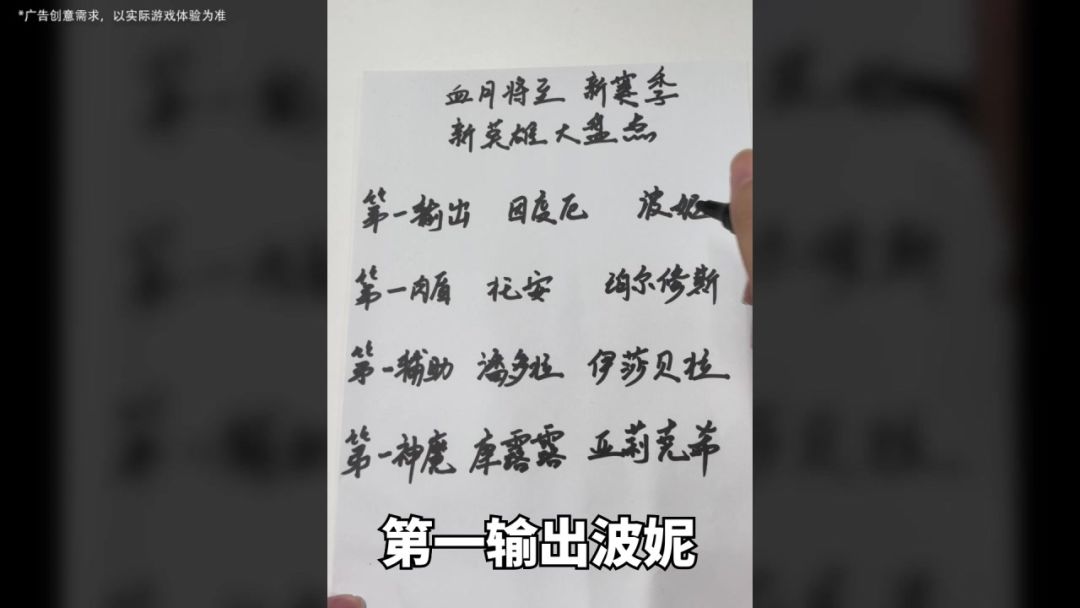 *广告创意需求，以实际游戏体验为准
血月将至 新赛季
新英雄大盘点
第一输出 因度厄 波妮
第一肉盾 托安 珀尔修斯
第一辅助 潘多拉 伊莎贝拉
第一神魔 库露露 亚莉克希
第一输出波妮